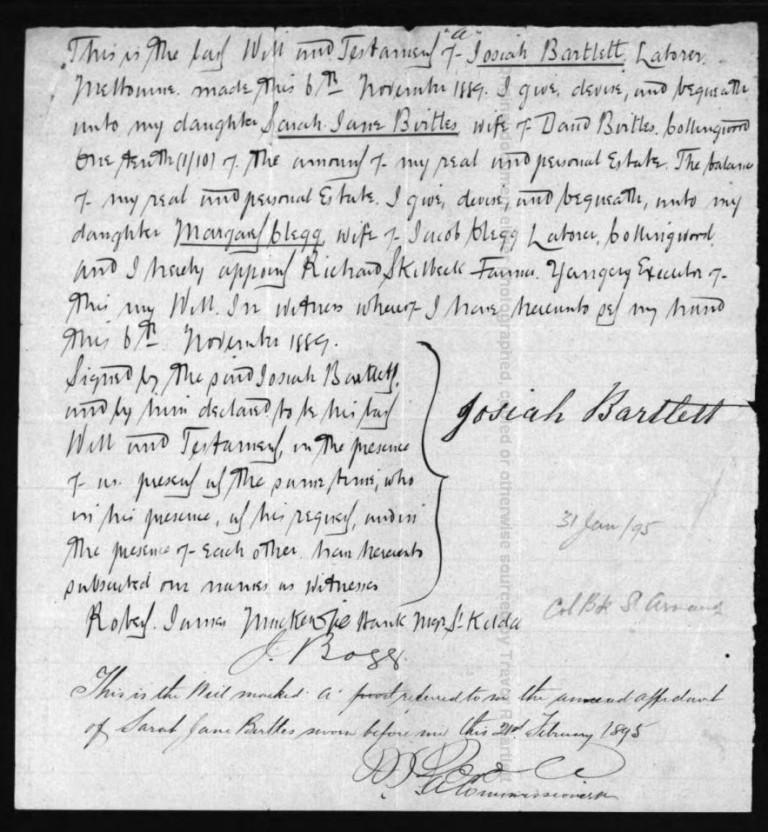 "a"
This is the last Will and Testament of Josiah Bartlett, Laborer.
Melbourne. made this 6th November 1889. I give, devise, and bequeath
unto my daughter Sarah Jane Birtles wife of David Birtles. Collingwood
One tenth (1/10) of the amount of my real and personal Estate. The balance
of my real and personal Estate. I give, devise, and bequeath, unto my
daughter Margaret Clegg, wife of Jacob Clegg Laborer, Collingwood
and I hereby appoint Richard Skilbeck Farmer. Yangery Executor of
this my Will. In witness whereof I have hereunto set my hand
this 6th November 1889.
Signed by the said Josiah Bartlett,
and by him declared to be his last
Will and Testament, in the presence
of us present at the same time, who
in his presence, at his request, and in
the presence of each other have hereunto
subscribed our names as witnesses
Josiah Bartlett
Robert James Mackenzie Bank Mgr St Kilda
J. Bogg
31 Jan /95
Col Bk St Arnaud
This is the Will marked a referred to in the annexed affidavit
of Sarah Jane Birtles sworn before me this 21st February 1895
A Commissioner
photographed, copied or otherwise sourced by Trevor R Bartlett